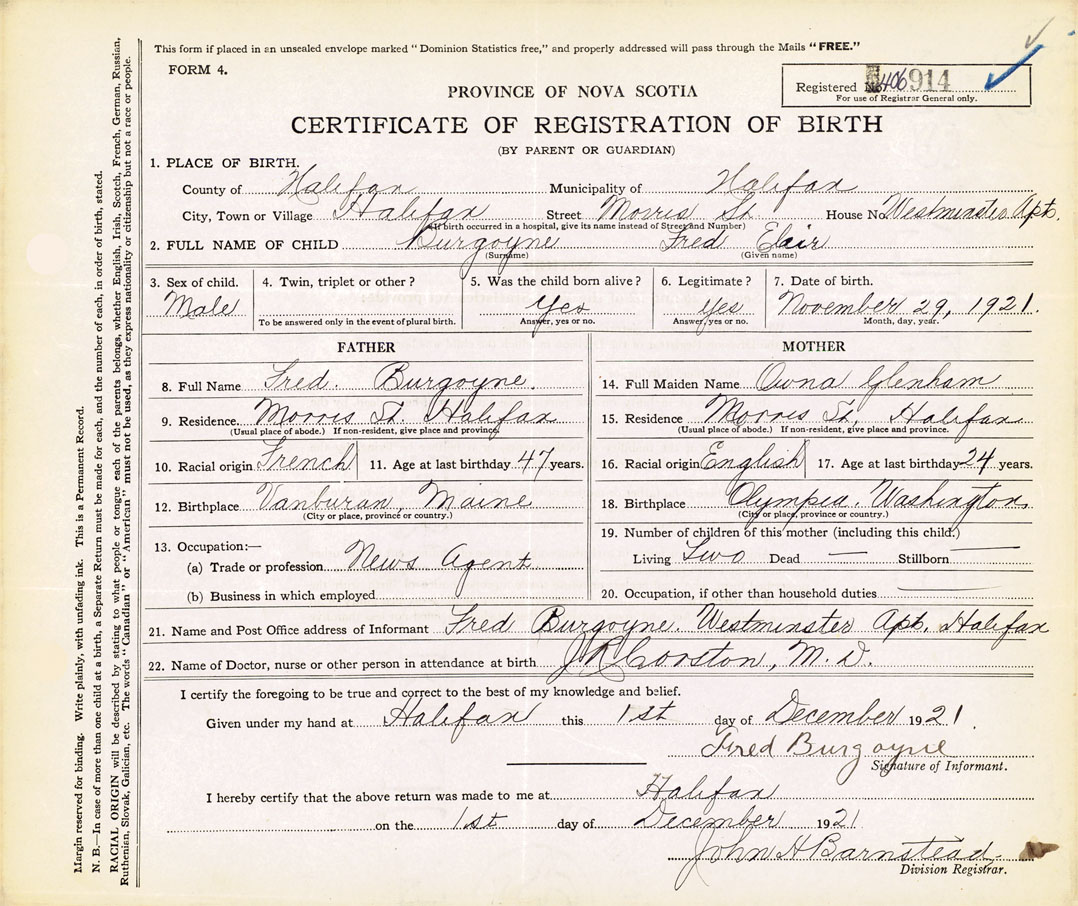 This form if placed in an unsealed envelope marked "Dominion Statistics free," and properly addressed will pass through the Mails "FREE."
FORM 4.
Registered No 406 914
For use of Registrar General only.
PROVINCE OF NOVA SCOTIA
CERTIFICATE OF REGISTRATION OF BIRTH
(BY PARENT OR GUARDIAN)
1. PLACE OF BIRTH.
County of Halifax Municipality of Halifax
City, Town or Village Halifax Street Morris St. House No Westminster Apt.
(If birth occurred in a hospital, give its name instead of Street and Number)
2. FULL NAME OF CHILD Burgoyne Fred Elair
(Surname) (Given name)
3. Sex of child. 4. Twin, triplet or other? 5. Was the child born alive? 6. Legitimate? 7. Date of birth.
Male Yes Yes November 29, 1921.
To be answered only in the event of plural birth. Answer, yes or no. Answer, yes or no. Month, day, year.
FATHER MOTHER
8. Full Name Fred. Burgoyne. 14. Full Maiden Name Owna Glenham
9. Residence Morris St. Halifax 15. Residence Morris St, Halifax
(Usual place of abode.) If non-resident, give place and province. (Usual place of abode.) If non-resident, give place and province.
10. Racial origin French 11. Age at last birthday 47 years. 16. Racial origin English 17. Age at last birthday 24 years.
12. Birthplace Vanburan, Maine 18. Birthplace Olympia, Washington.
(City or place, province or country.) (City or place, province or country.)
13. Occupation:— 19. Number of children of this mother (including this child.)
(a) Trade or profession News Agent Living Two Dead — Stillborn —
(b) Business in which employed 20. Occupation, if other than household duties —
21. Name and Post Office address of Informant Fred Burgoyne. Westminster Apt. Halifax
22. Name of Doctor, nurse or other person in attendance at birth J R Corston, M.D.
I certify the foregoing to be true and correct to the best of my knowledge and belief.
Given under my hand at Halifax this 1st day of December 1921
Fred Burgoyne
Signature of Informant.
I hereby certify that the above return was made to me at Halifax
on the 1st day of December 1921
John H Barnstead
Division Registrar.
Margin reserved for binding. Write plainly, with unfading ink. This is a Permanent Record.
N. B.—In case of more than one child at a birth, a Separate Return must be made for each, and the number of each, in order of birth, stated.
RACIAL ORIGIN will be described by stating to what people or tongue each of the parents belongs, whether English, Irish, Scotch, French, German, Russian,
Ruthenian, Slovak, Galician, etc. The words "Canadian" or "American" must not be used, as they express nationality or citizenship but not a race or people.